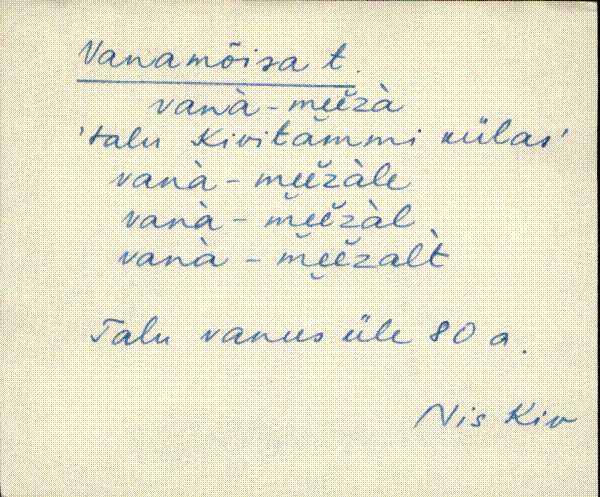 Vanamõisa t.
vanà - mèèžà
'talu Kivitammi külas'
vanà - mèèžàle
vanà - mèèžàl
vanà - mèèžalt
Talu vanus üle 80 a.
Nis Kiv